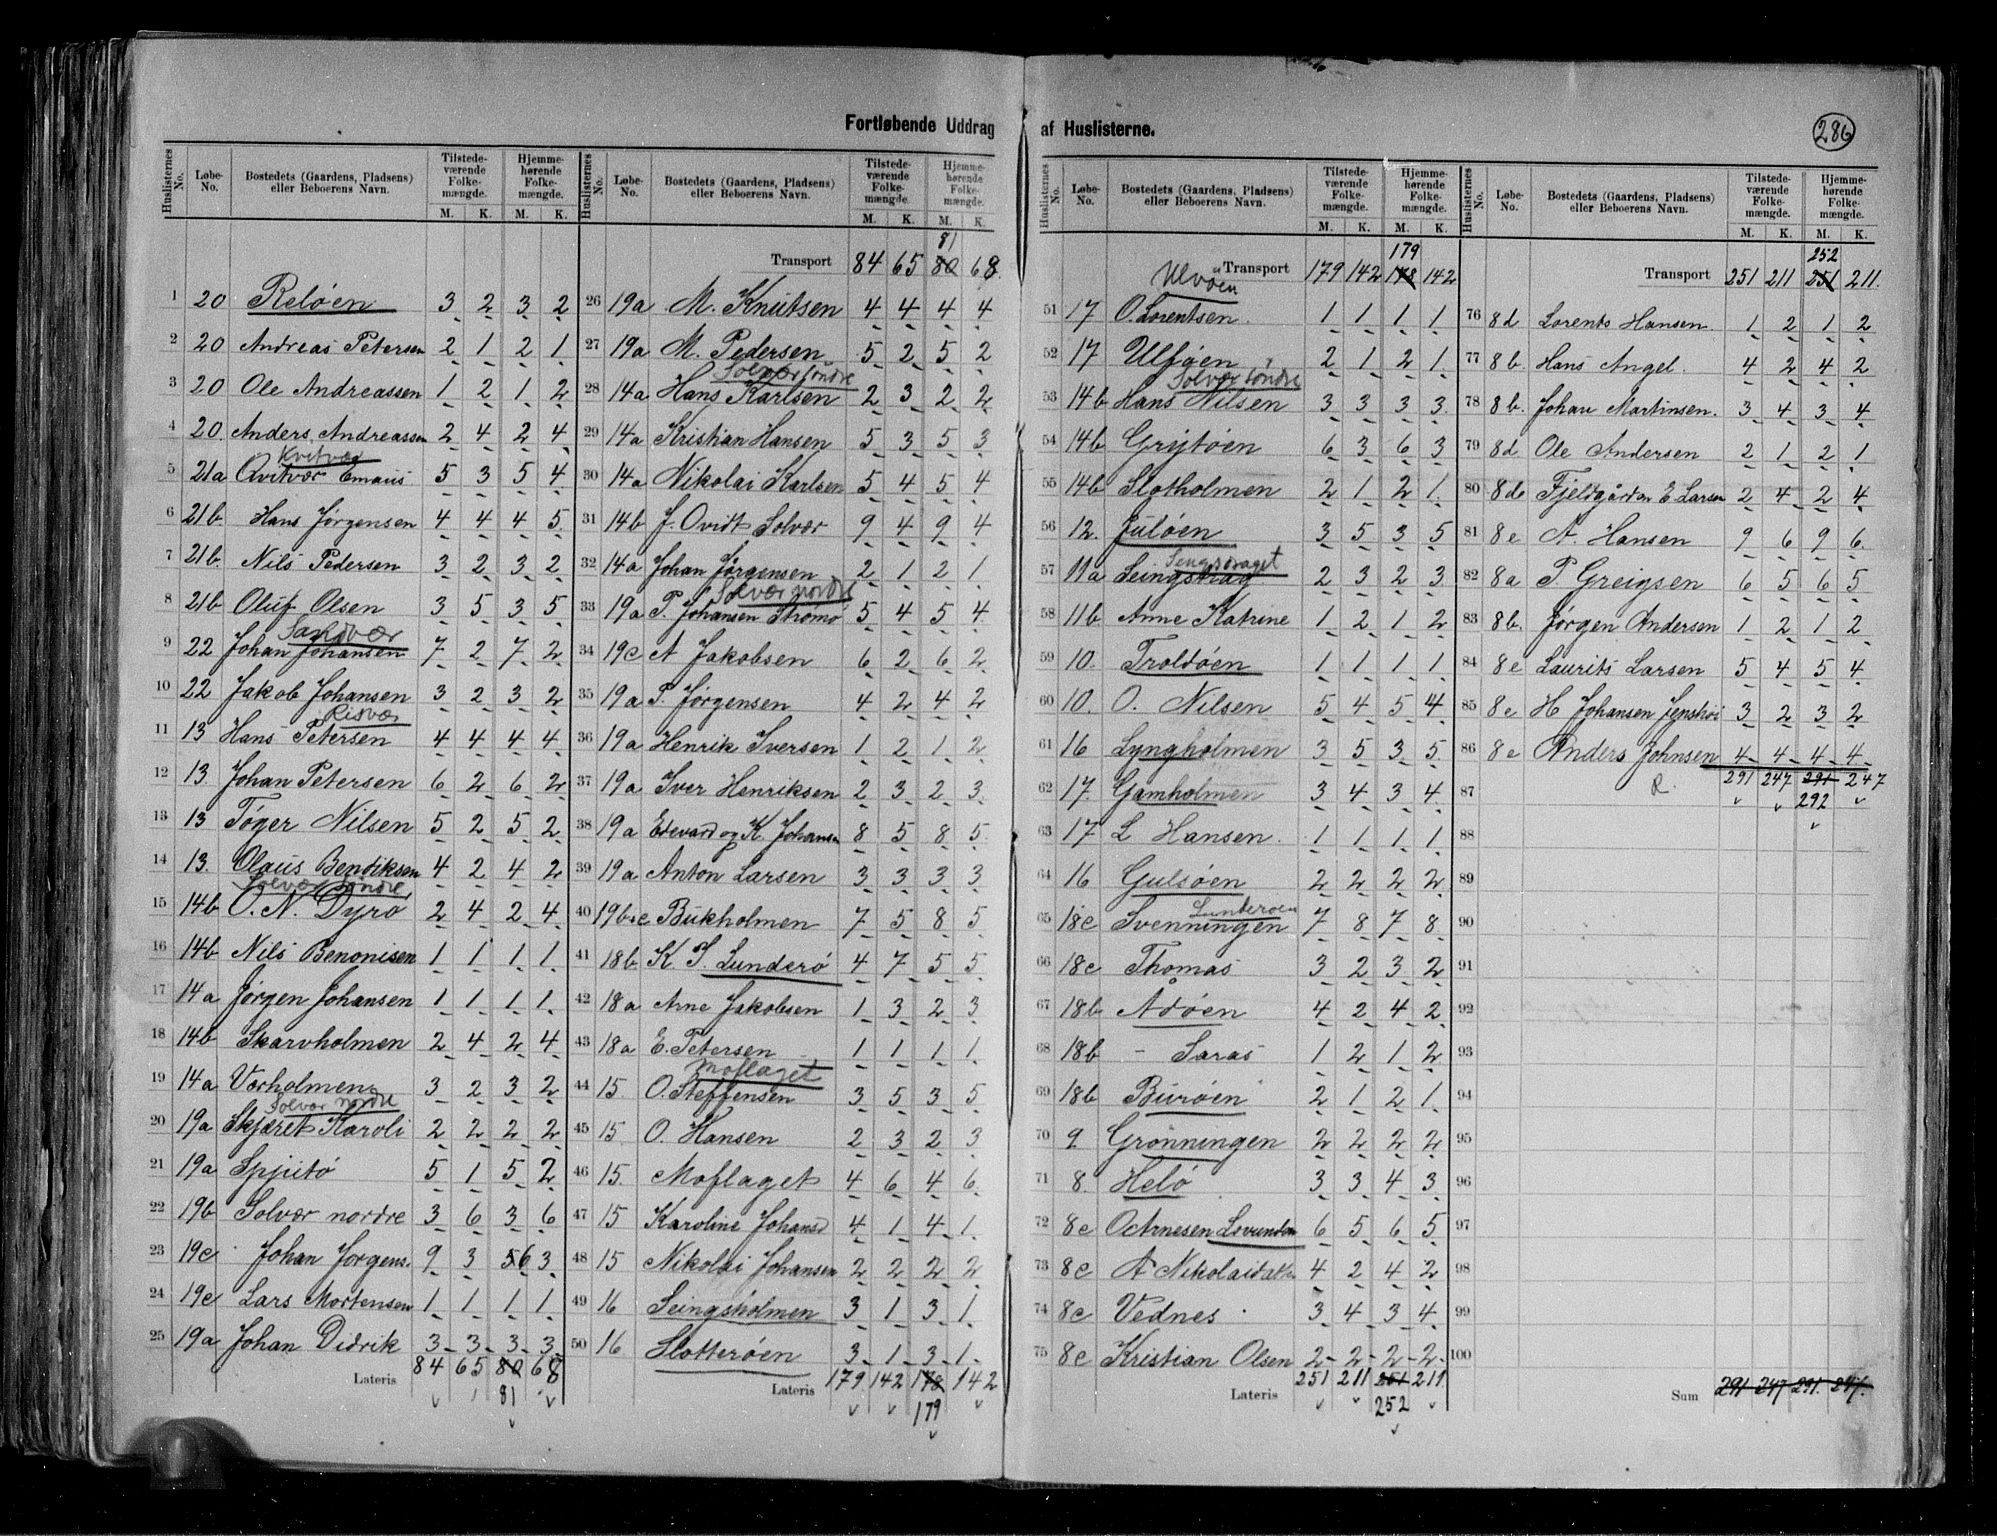 Fortløbende Uddrag af Huslisterne.
286
Huslisternes No. Løbe-No. Bostedets (Gaardens, Pladsens) eller Beboerens Navn. Tilstedeværende Folkemængde. M. K. Hjemmehørende Folkemængde. M. K.
1 20 Reløen 3 2 3 2
2 20 Andreas Petersen 2 1 2 1
3 20 Ole Andreassen 1 2 1 2
4 20. Anders Andreassen 2 4 2 4
Kvitvær
5 21a Qvitvær Emaus 5 3 5 4
6 21b. Hans Jørgensen 4 4 4 5
7 21b. Nils Pedersen 3 2 3 2
8 21b Oluf Olsen 3 5 3 5
Sandvær
9 22 Johan Johansen 7 2 7 2
10 22 Jakob Johansen 3 2 3 2
Risvær
11 13 Hans Petersen 4 4 4 4
12 13. Johan Petersen 6 2 6 2
13 13 Tøger Nilsen 5 2 5 2
14 13. Olaus Bendiksen 4 2 4 2
Solvær søndre
15 14b O. N. Dyrø 2 4 2 4
16 14b Nils Benonisen 1 1 1 1
17 14a Jørgen Johansen 1 1 1 1
18 14b Skarvholmen 2 4 2 4
19 14a Værholmen 3 2 3 2
Solvær nordre
20 19a Skjæret Karoli 2 2 2 2
21 19a Spjutø 5 1 5 2
22 19b Solvær nordre 3 6 3 6
23 19c Johan Jørgens. 9 3 5 6 3
24 19c Lars Mortensen 1 1 1 1
25 19a Johan Didrik 3 3 3 3
Lateris 84 65 80 68
81
Huslisternes No. Løbe-No. Bostedets (Gaardens, Pladsens) eller Beboerens Navn. Tilstedeværende Folkemængde. M. K. Hjemmehørende Folkemængde. M. K.
81
Transport 84 65 80 68.
26 19a M. Knutsen 4 4 4 4
27 19a M. Pedersen 5 2 5 2
Solvær søndre
28 14a Hans Karlsen 2 3 2 2
29 14a Kristian Hansen 5 3 5 3
30 14a Nikolai Karlsen 5 4 5 4
31 14b J. Ovidt Solvær 9 4 9 4
32 14a Johan Jørgensen 2 1 2 1
Solvær nordre
33 19a P. Johansen Strømø 5 4 5 4
34 19c A Jakobsen 6 2 6 2
35 19a P. Jørgensen 4 2 4 2
36 19a Henrik Iversen 1 2 1 2
37 19a Iver Henriksen 2 3 2 3
38 19a Edevard og K. Johansen 8 5 8 5
39 19a Anton Larsen 3 3 3 3
40 19b+c Bukholmen 7 5 8 5
41 18b K. P. Lunderø 4 7 5 5
42 18a Arne Jakobsen 1 3 2 3
43 18a E. Petersen 1 1 1 1
Moflaget
44 15 O. Steffensen 3 5 3 5
45 15 O. Hansen 2 3 2 3
46 15. Moflaget 4 6 4 6
47 15 Karoline Johansd 4 1 4 1
48 15 Nikolai Johansen 2 2 2 2
49 16 Seingsholmen 3 1 3 1
50 16 Slotterøen 3 1 3 1
Lateris 179 142 178 142
179
Huslisternes No. Løbe-No. Bostedets (Gaardens, Pladsens) eller Beboerens Navn. Tilstedeværende Folkemængde. M. K. Hjemmehørende Folkemængde. M. K.
179
Ulvøen Transport 179 142 178 142
51 17 O. Lorentsen. 1 1 1 1
52 17 Ulføen 2 1 2 1
Solvær søndre
53 14b Hans Nilsen 3 3 3 3
54 14b Grejtøen 6 3 6 3
55 14b Slotholmen 2 1 2 1
56 12. Juløen 3 5 3 5
Sengsdraget
57 11a Seingsdrag 2 3 2 3
58 11b Anne Katrine 1 2 1 2
59 10. Troldøen 1 1 1 1
60 10. O. Nilsen 5 4 5 4
61 16 Lyngholmen 3 5 3 5
62 17. Gamholmen 3 4 3 4
63 17 L Hansen. 1 1 1 1
64 16 Gulsøen 2 2 2 2
Lunderøen
65 18c Svenningen 7 8 7 8
66 18c Thomas 3 2 3 2
67 18b Aaøen 4 2 4 2
68 18b - Saras 1 2 1 2
69 18b Burøen 2 1 2 1
70 9 Grønningen 2 2 2 2
71 8. Helø 3 3 4 3
72 8c O Arnesen Lovunden 6 5 6 5
73 8c A Nikolai 4 2 4 2
74 8c Vednes 3 4 3 4
75 8c Kristian Olsen 2 2 2 2
Lateris 251 211 251 211
252
Huslisternes No. Løbe-No. Bostedets (Gaardens, Pladsens) eller Beboerens Navn. Tilstedeværende Folkemængde. M. K. Hjemmehørende Folkemængde. M. K.
252
Transport 251 211 251 211.
76 8d Lorents Hansen 1 2 1 2
77 8b. Hans Angel. 4 2 4 2
78 8b. Johan Martinsen. 3 4 3 4
79 8d Ole Andersen 2 1 2 1
80 8d Fjeldgården E. Larsen 2 4 2 4
81 8e A. Hansen 9 6 9 6
82 8a P. Greigsen 6 5 6 5
83 8b. Jørgen Andersen 1 2 1 2
84 8e Laurits Larsen 5 4 5 4
85 8e H Johansen 3 2 3 2
86 8e Anders Johnsen 4 4 4 4
87 R. 291 247 291 247
292
88
89
90
91
92
93
94
95
96
97
98
99
100
Sum 291 247 291. 247.